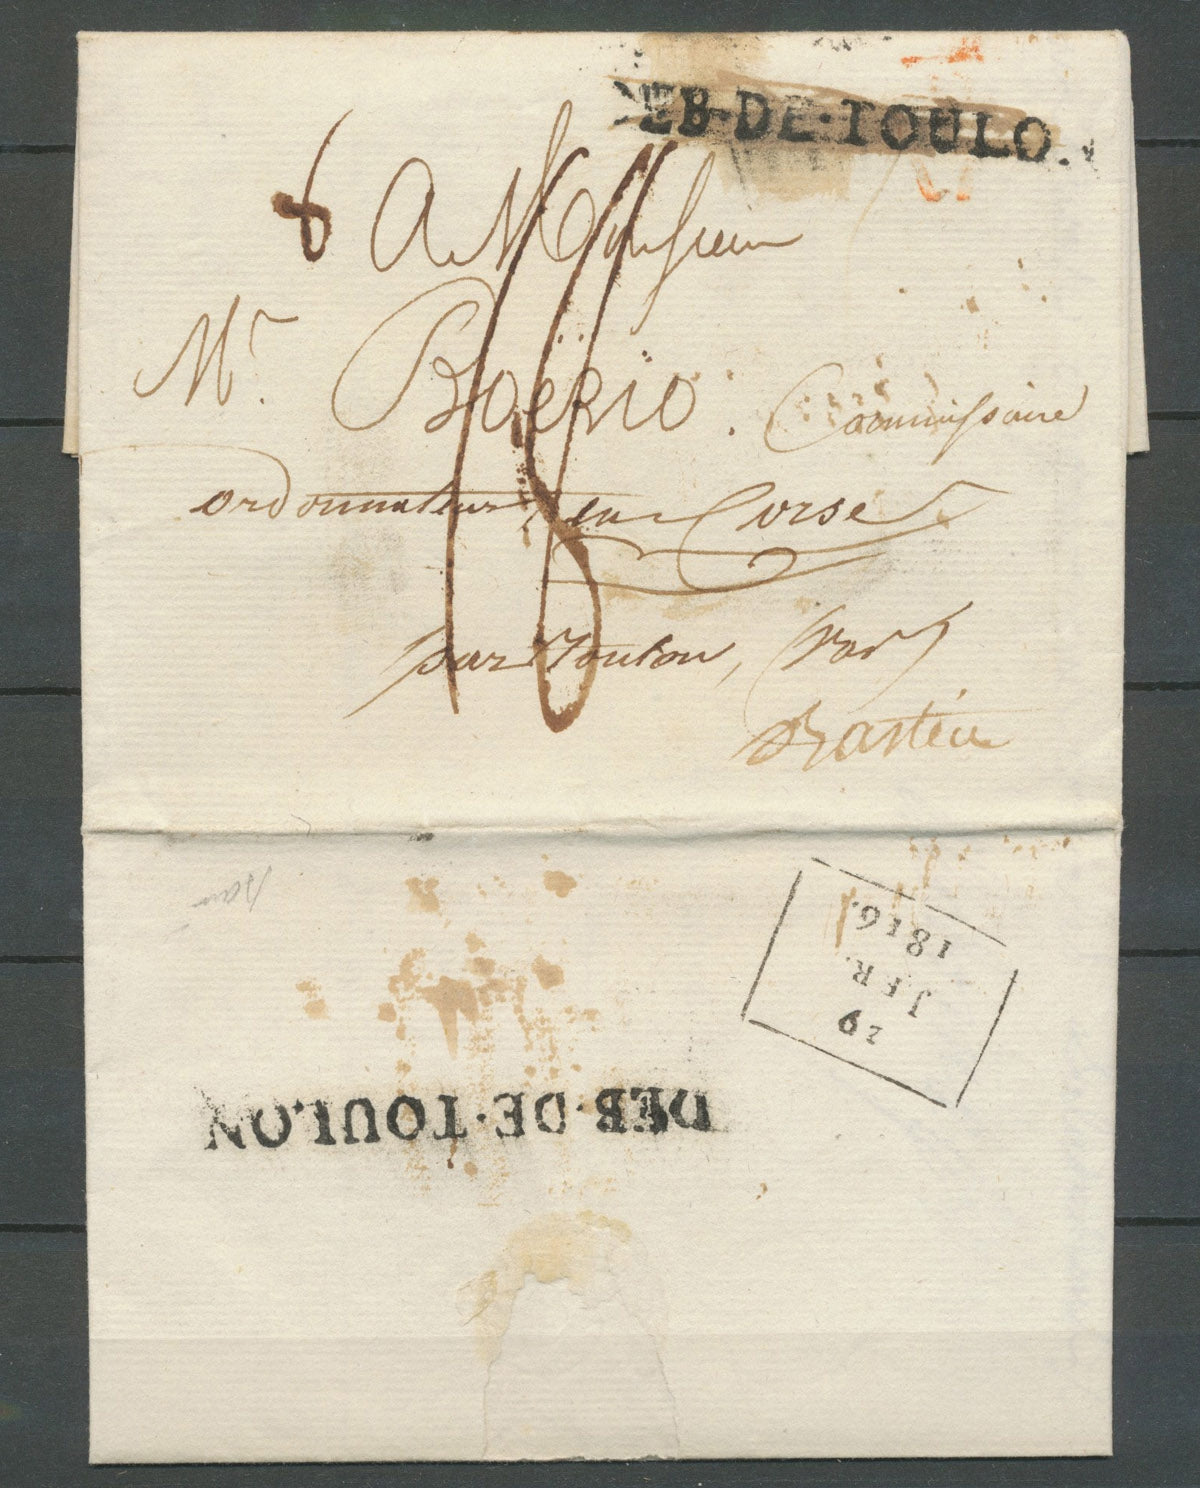 EB·DE·TOULO.
8 A Monsieur
18
Mr. Boërio. Commissaire
ordonnateur en Corse
par Toulon, (Var)
Bastia
29
JER.
1816.
DEB·DE·TOULON